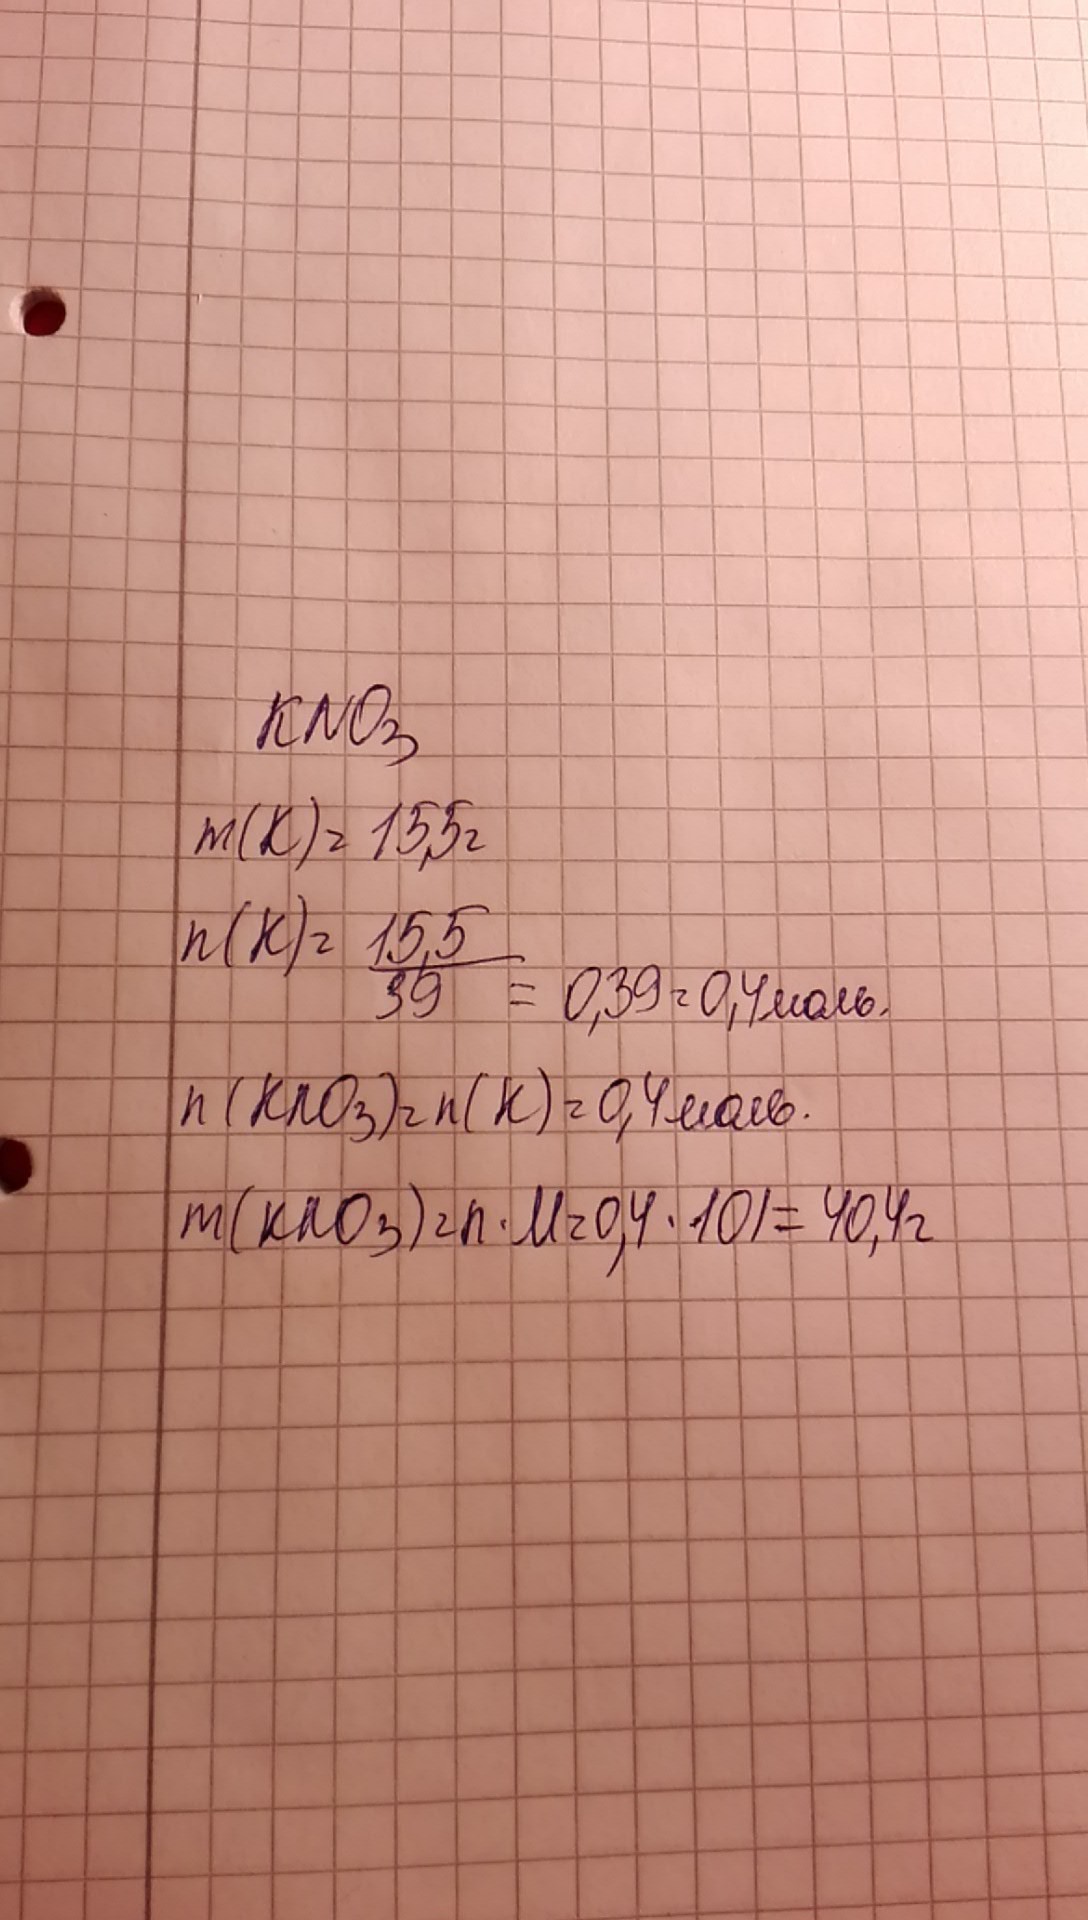 KNO₃
m(K)= 15,5г
n(K)= 15,5/39 = 0,39=0,4моль.
n(KNO₃)=n(K)=0,4моль.
m(KNO₃)=n·M=0,4·101=40,4г